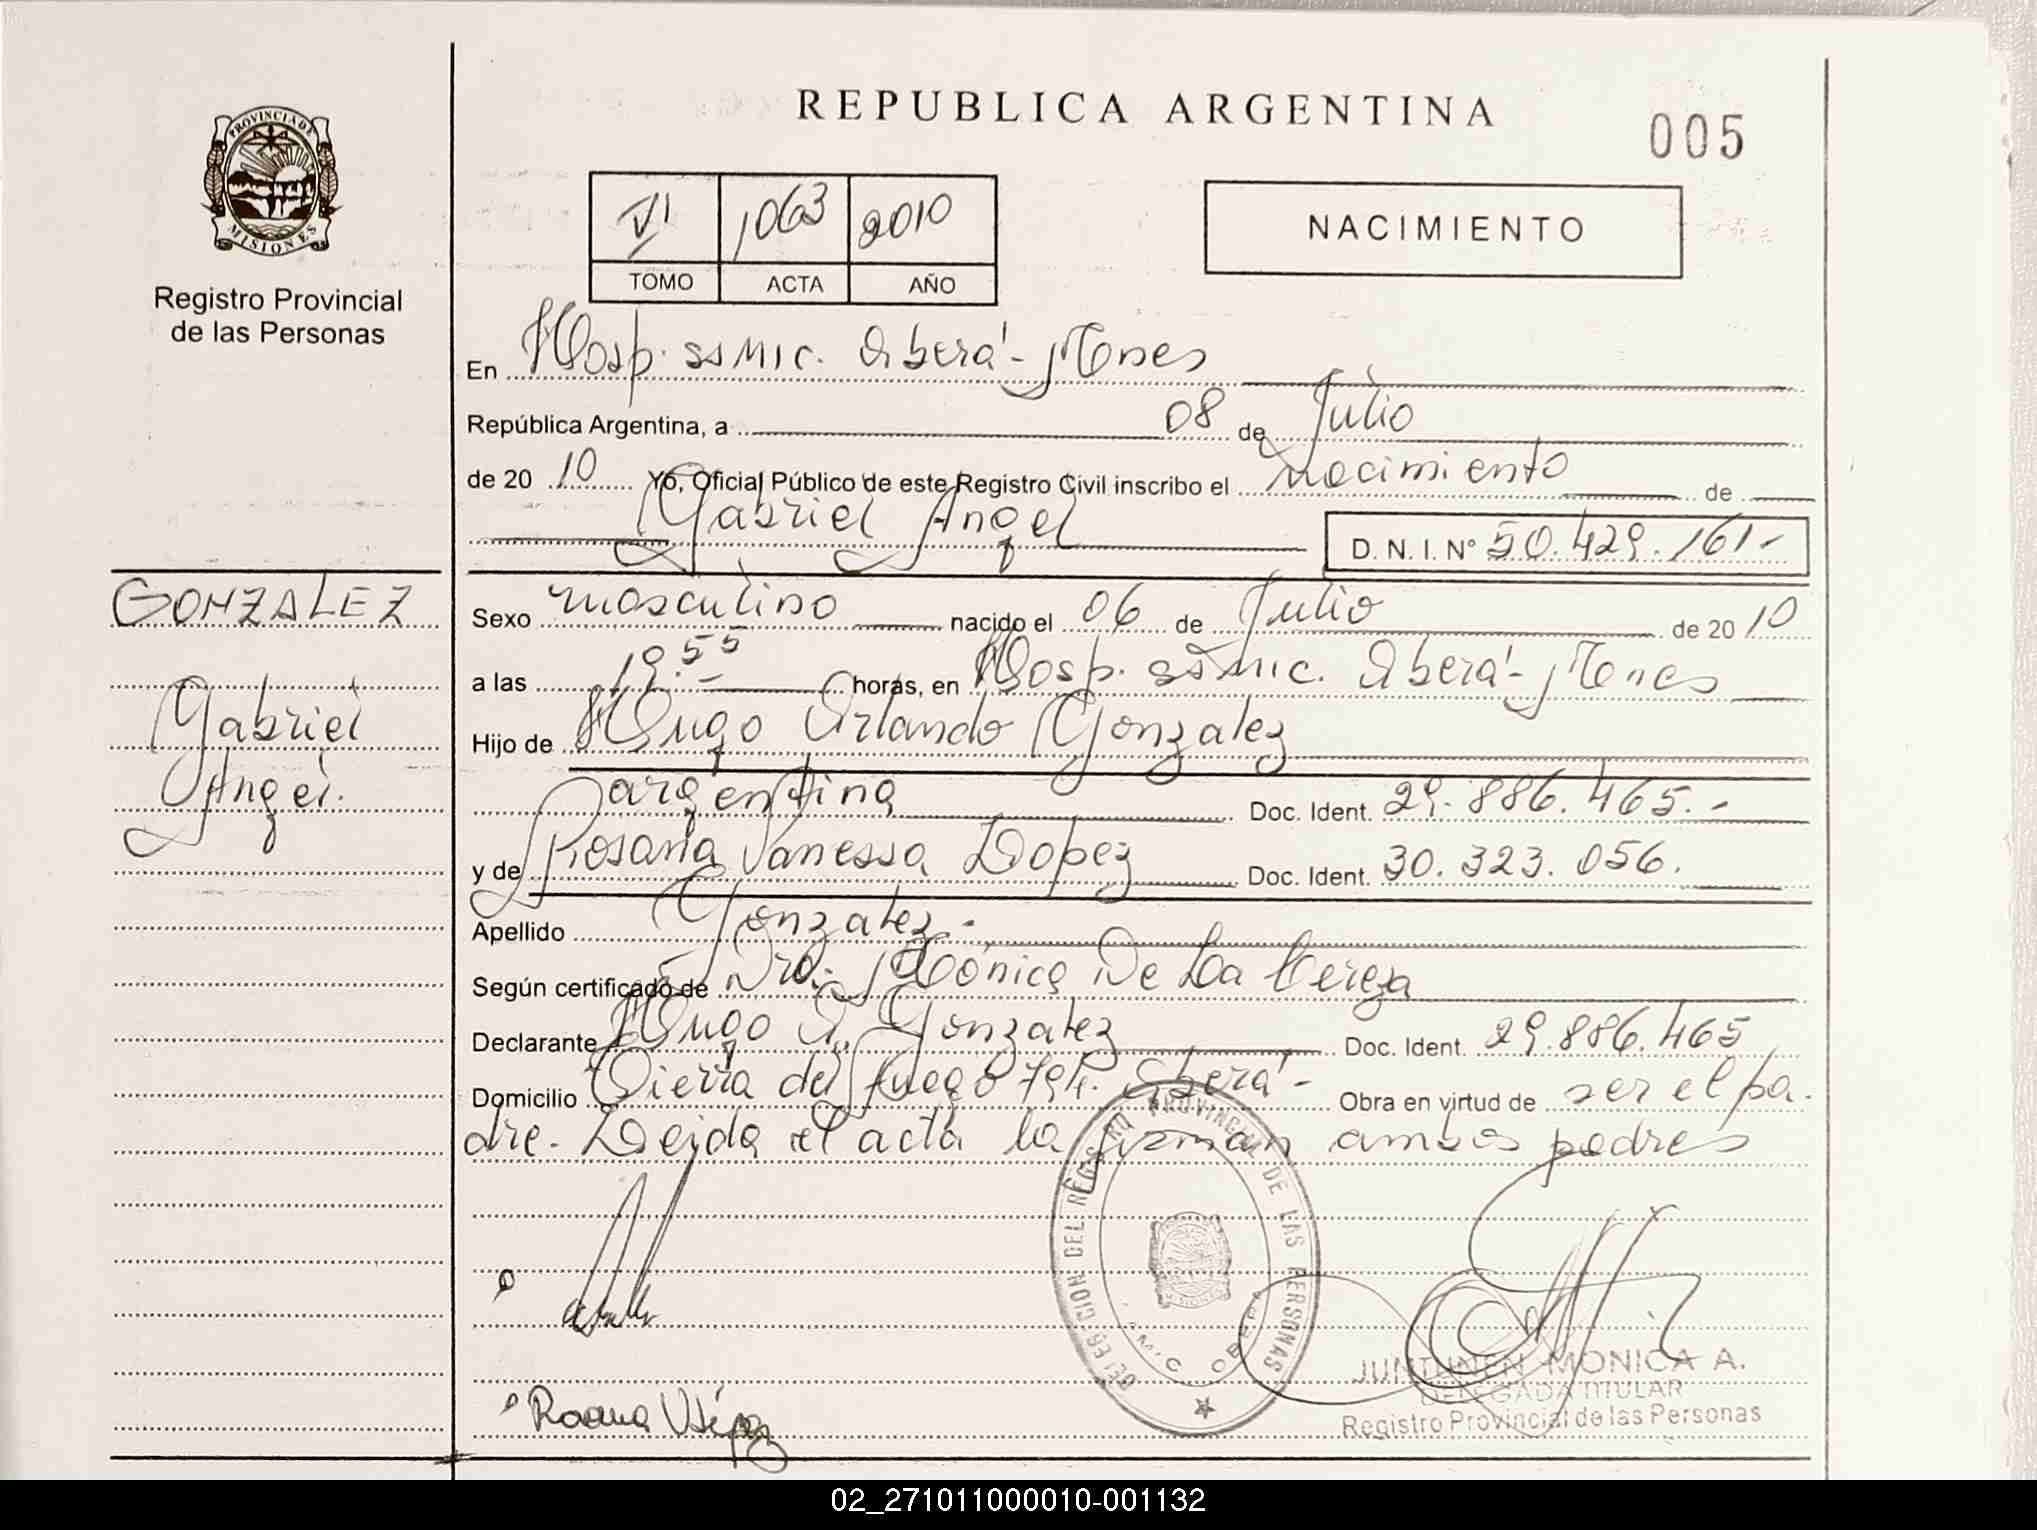 PROVINCIA DE
MISIONES
Registro Provincial
de las Personas
GONZALEZ
Gabriel
Angel.
REPUBLICA ARGENTINA
005
VI 1063 2010
TOMO ACTA AÑO
NACIMIENTO
En Hosp. SSMIC. Oberá - Mones
República Argentina, a 08 de Julio
de 2010 Yo, Oficial Público de este Registro Civil inscribo el nacimiento de
Gabriel Angel D. N. I. N° 50.429.161-
Sexo masculino nacido el 06 de Julio de 2010
a las 19.55 horas, en Hosp. SSMIC. Oberá - Mones
Hijo de Hugo Orlando Gonzalez
argentina Doc. Ident. 29.886.465.-
y de Rosana Vanessa Lopez Doc. Ident. 30.323.056.
Apellido Gonzalez.-
Según certificado de Dra. Mónica De La Cereza
Declarante Hugo O. Gonzalez Doc. Ident. 29.886.465
Domicilio Tierra del Fuego 794. Oberá - Obra en virtud de ser el pa-
dre. Leida el acta la firman ambos padres
DELEGACION DEL REGISTRO PROVINCIAL DE LAS PERSONAS
OBERA
JUNTUNEN MONICA A.
DELEGADA TITULAR
Registro Provincial de las Personas
02_271011000010-001132